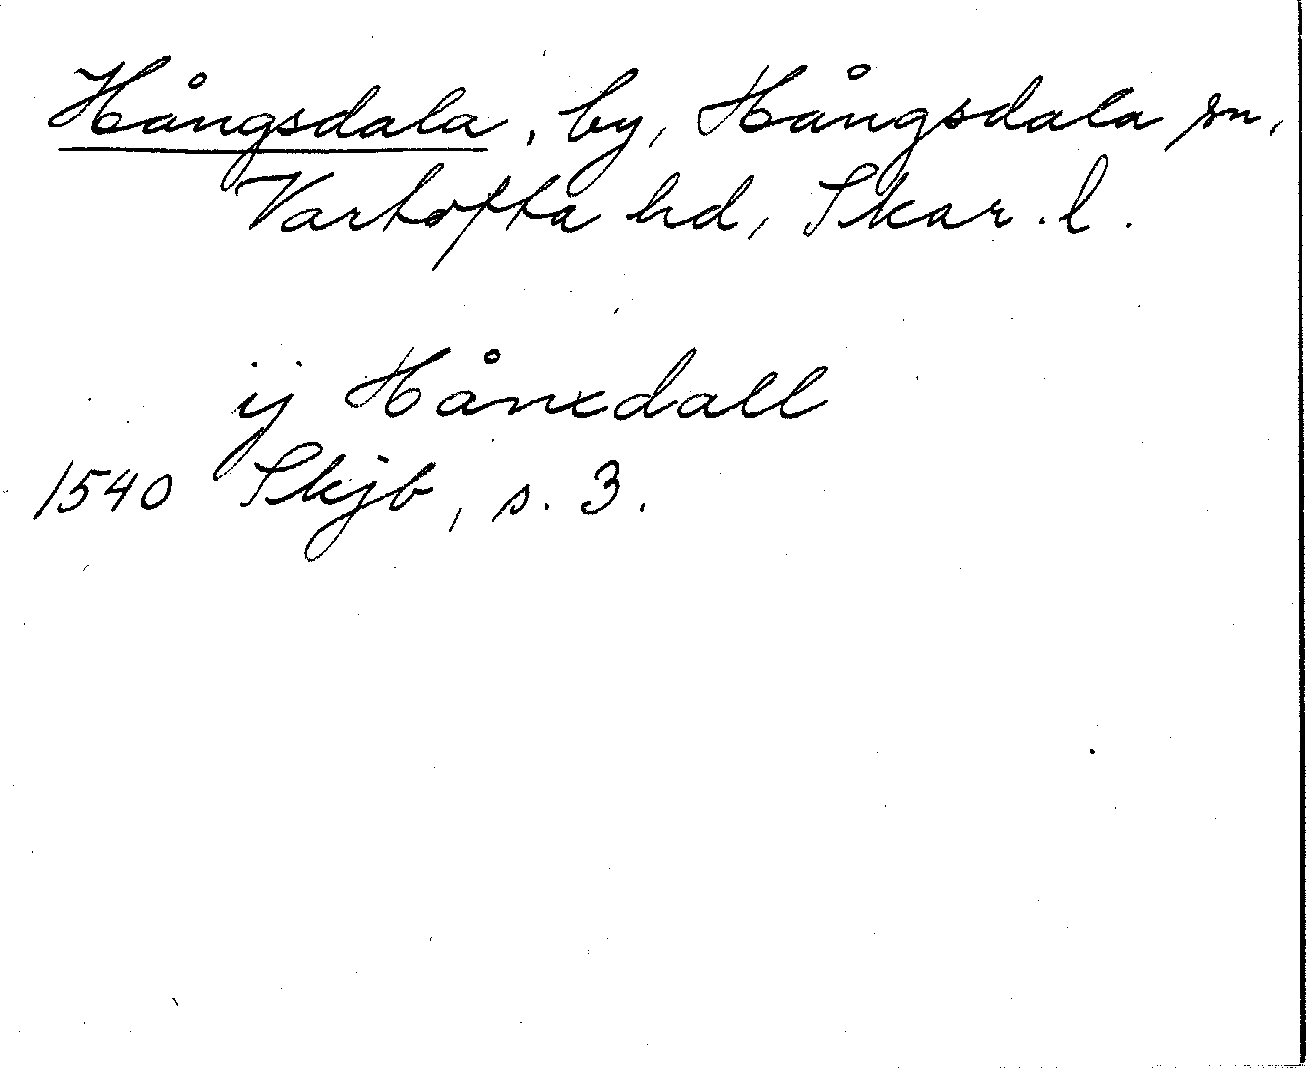 Hångsdala, by, Hångsdala sn,
Vartofta hd, Skar. l.
ij Hånxdall
1540 Skjb, s. 3.